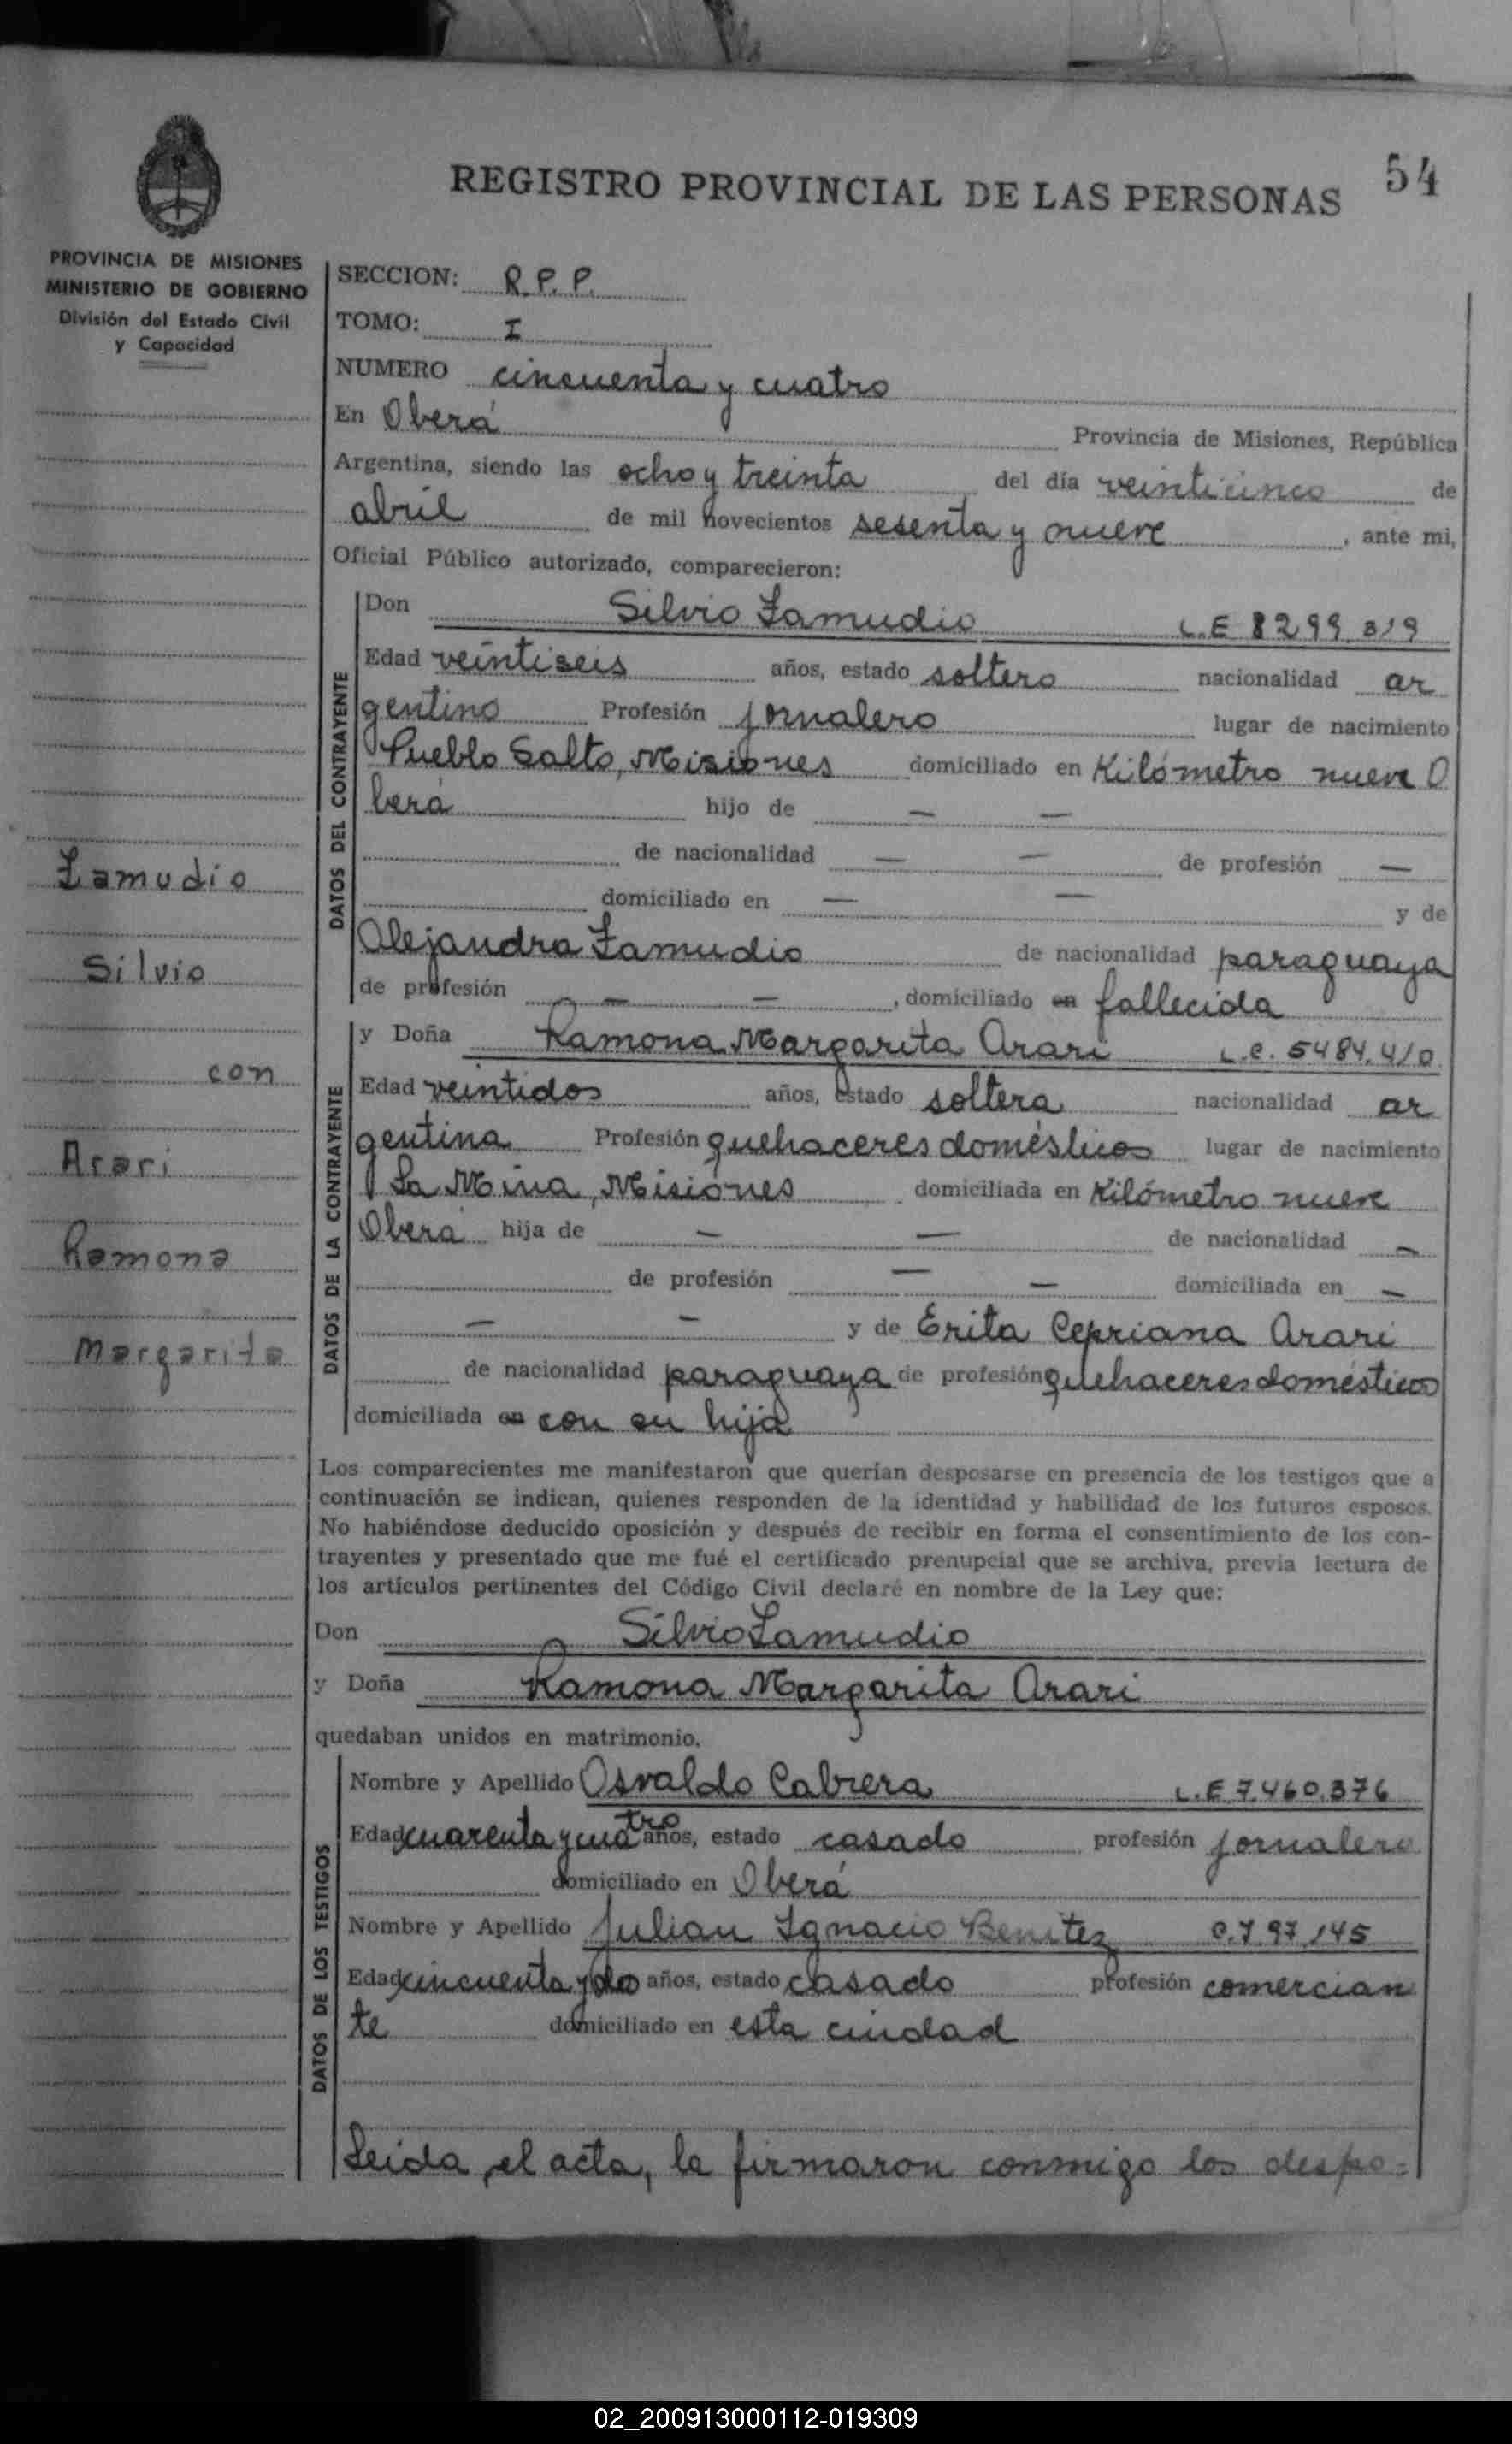 REGISTRO PROVINCIAL DE LAS PERSONAS 54
PROVINCIA DE MISIONES
MINISTERIO DE GOBIERNO
División del Estado Civil
y Capacidad
SECCION: R.P.P.
TOMO: I
NUMERO cincuenta y cuatro
En Oberá Provincia de Misiones, República
Argentina, siendo las ocho y treinta del día veinticinco de
abril de mil novecientos sesenta y nueve, ante mi,
Oficial Público autorizado, comparecieron:
DATOS DEL CONTRAYENTE
Don Silvio Zamudio L.E 8299.319
Edad veintiseis años, estado soltero nacionalidad ar
gentino Profesión jornalero lugar de nacimiento
Pueblo Salto, Misiones domiciliado en Kilómetro nueve O
berá hijo de — —
de nacionalidad — — de profesión —
domiciliado en — — y de
Alejandra Zamudio de nacionalidad paraguaya
de profesión — —, domiciliado en fallecida
DATOS DE LA CONTRAYENTE
y Doña Ramona Margarita Arari L.C. 5484.410
Edad veintidos años, estado soltera nacionalidad ar
gentina Profesión quehaceres domésticos lugar de nacimiento
La Mina, Misiones domiciliada en Kilómetro nueve
Oberá hija de — — de nacionalidad —
de profesión — — domiciliada en —
— — y de Erita Cepriana Arari
de nacionalidad paraguaya de profesión quehaceres domésticos
domiciliada en con su hija
Zamudio
Silvio
con
Arari
Ramona
Margarita
Los comparecientes me manifestaron que querían desposarse en presencia de los testigos que a
continuación se indican, quienes responden de la identidad y habilidad de los futuros esposos.
No habiéndose deducido oposición y después de recibir en forma el consentimiento de los con-
trayentes y presentado que me fué el certificado prenupcial que se archiva, previa lectura de
los artículos pertinentes del Código Civil declaré en nombre de la Ley que:
Don Silvio Zamudio
y Doña Ramona Margarita Arari
quedaban unidos en matrimonio.
DATOS DE LOS TESTIGOS
Nombre y Apellido Osvaldo Cabrera L.E 7.460.376
Edad cuarenta y cuatro años, estado casado profesión jornalero
domiciliado en Oberá
Nombre y Apellido Julian Ignacio Benitez
Edad cincuenta y dos años, estado casado profesión comercian
te domiciliado en esta ciudad
Leida, el acta, la firmaron conmigo los despo=
02_200913000112-019309